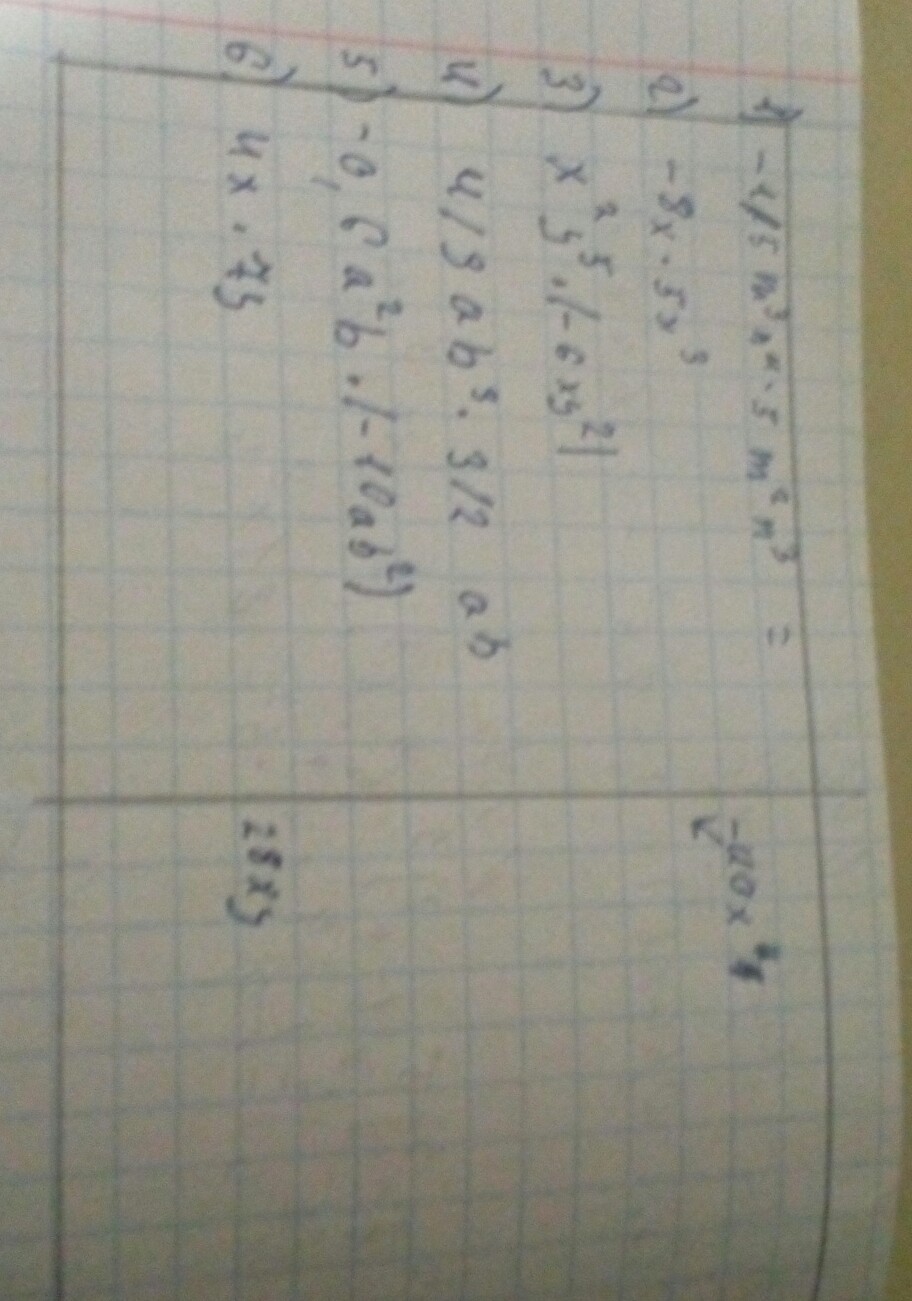 1) -1/5 m³n⁴ · 5 m²n³ =
2) -8x · 5x³ -40x⁴
3) x²y⁵ · (-6xy²)
4) 4/9 ab³ · 3/2 ab
5) -0,6a²b · (-10ab²)
6) 4x · 7y 28xy